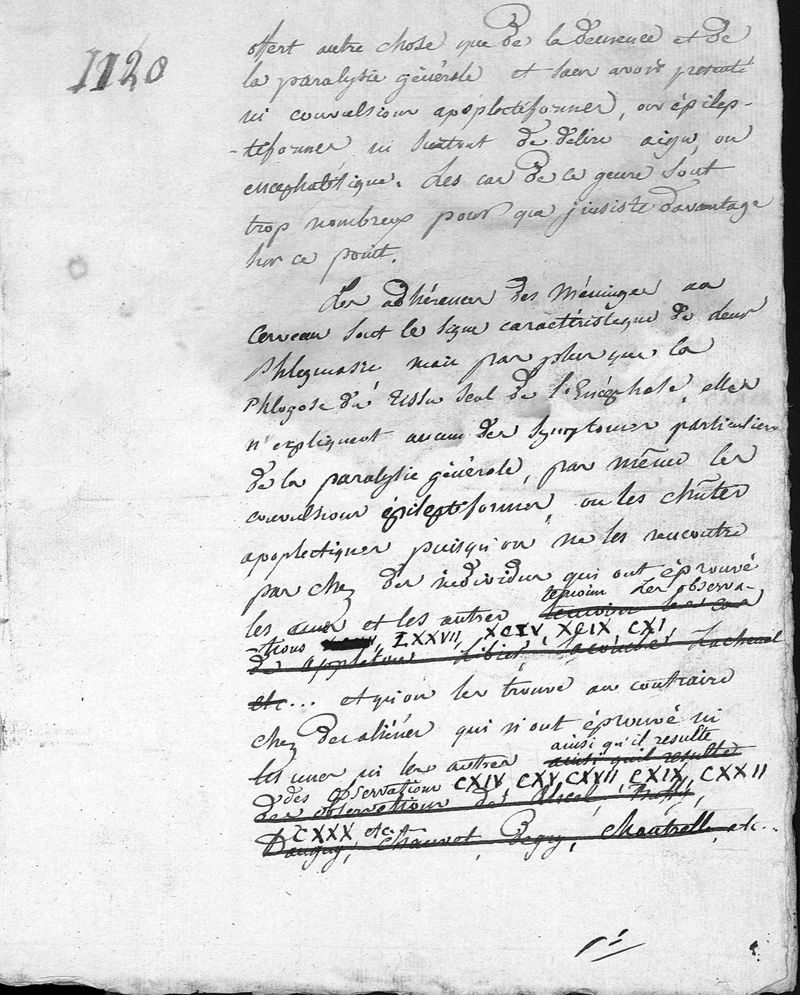 1120
offert autre chose que de la démence et de
la paralysie générale et sans avoir présenté
ni convulsions apoplectiformes, ou épilep-
-tiformes ni surtout de délire aigu, ou
encephalitique. Les cas de ce genre sont
trop nombreux pour que j'insiste davantage
sur ce point.
Les adhérences des Méninges au
Cerveau sont le signe caractéristique de leur
Phlegmasie mais pas plus que la
Phlogose du tissu seul de l'Encéphale, elles
n'expliquent aucun des symptomes particuliers
de la paralysie générale, pas même les
convulsions épileptiformes, ou les chûtes
apoplectiques puisqu'on ne les rencontre
pas chez des individus qui ont éprouvé
temoins les observa-
les unes et les autres temoins les cas
-tions LXXVII, XCIV, XCIX, CXI,
de Appleton, Libier,
etc... et qu'on les trouve au contraire
chez des aliénés qui n'ont éprouvé ni
ainsi qu'il resulte
les unes ni les autres ainsi qu'il resulte
des observations CXIV CXV, CXVII, CXIX, CXXII
des observations de
CXXX etc.
Chauvot, Begy, etc..